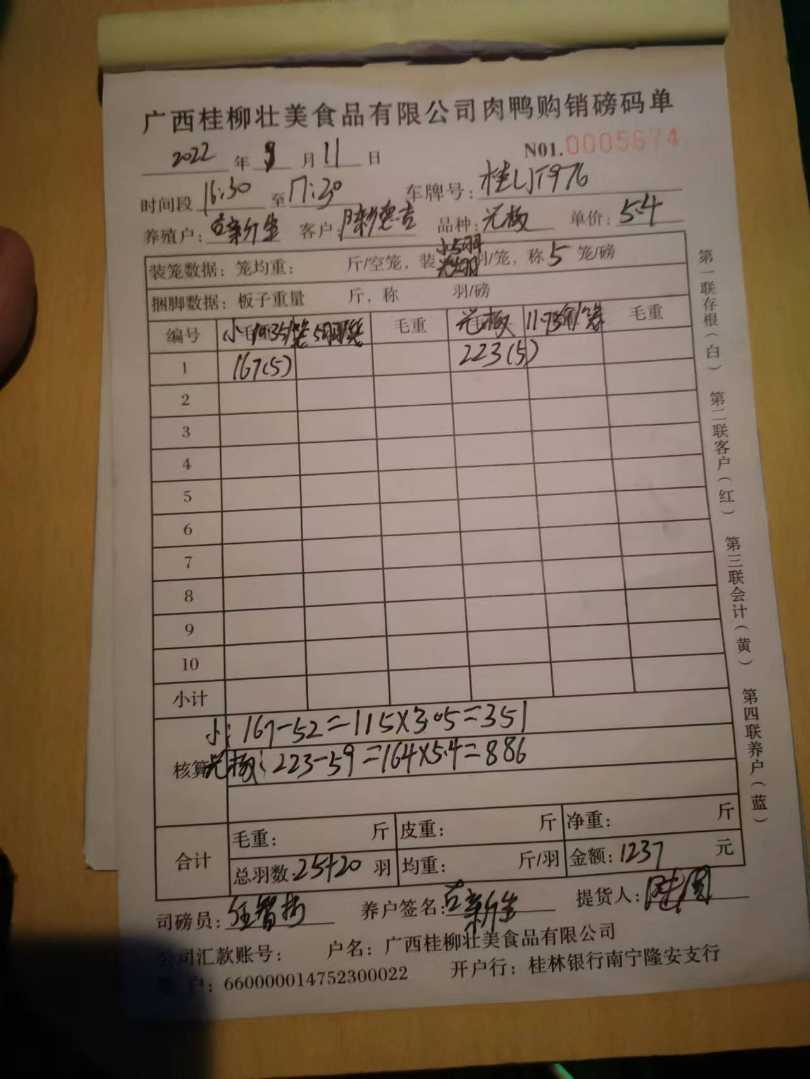 广西桂柳壮美食品有限公司肉鸭购销磅码单
2022 年 9 月 11 日 N01.0005674
时间段 16:30 至 17:30 车牌号: 桂LJT976
养殖户: 新生 客户: 陈 品种: 光板 单价: 5.4
装笼数据: 笼均重: 斤/空笼, 装 羽/笼, 称 5 笼/磅
捆脚数据: 板子重量 斤, 称 羽/磅
编号 小 毛重 光板 11.7 毛重
1 167(5) 223(5)
2
3
4
5
6
7
8
9
10
小计
小: 167-52=115×3.05=351
核算 光板: 223-59=164×5.4=886
合计
毛重: 斤 皮重: 斤 净重: 斤
总羽数 25+20 羽 均重: 斤/羽 金额: 1237 元
司磅员: 养户签名: 新生 提货人:
公司汇款账号: 户名: 广西桂柳壮美食品有限公司
户: 660000014752300022 开户行: 桂林银行南宁隆安支行
第一联存根(白) 第二联客户(红) 第三联会计(黄) 第四联养户(蓝)